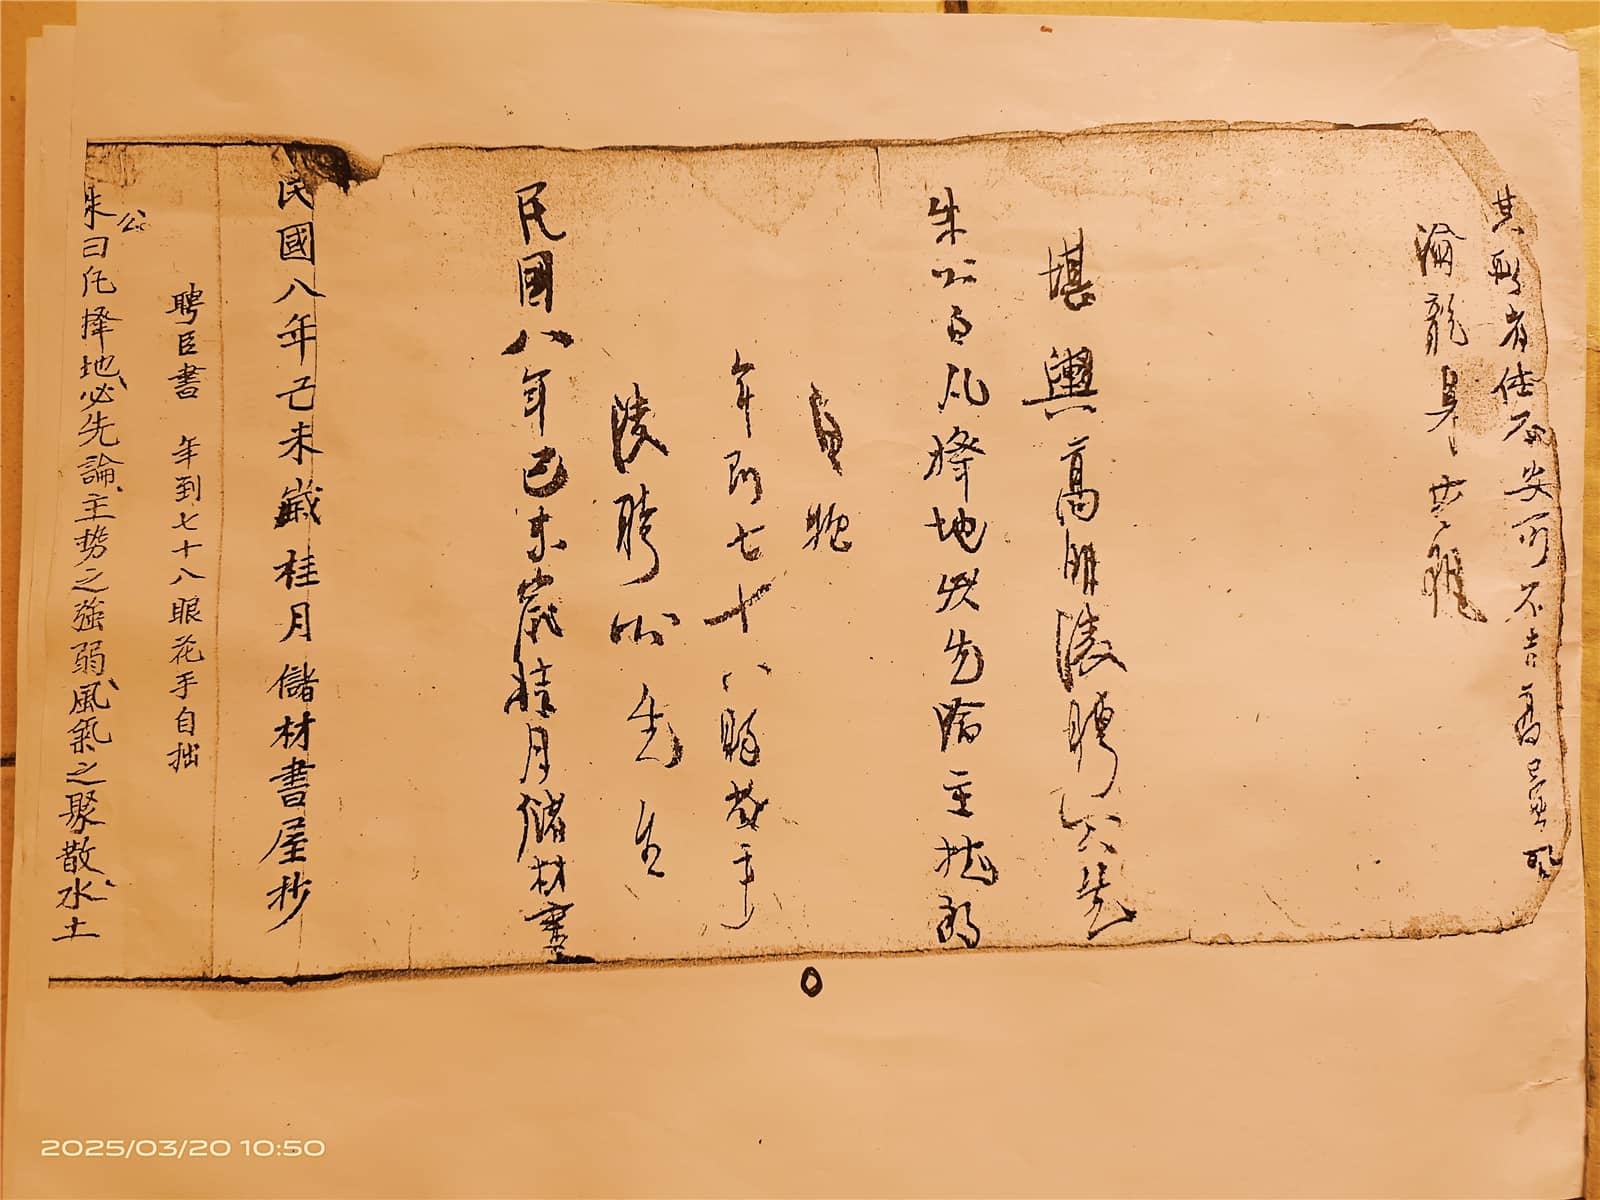 其形者 不安 不吉
龍身
堪輿高明陵聘公先
朱公曰凡擇地必先論主
自拙
年到七十八眼花手
陵聘公先生
民國八年己未歲桂月儲材書
民國八年己未歲桂月儲材書屋抄
聘臣書 年到七十八眼花手自拙
朱公曰凡擇地必先論主勢之強弱風氣之聚散水土
2025/03/20 10:50